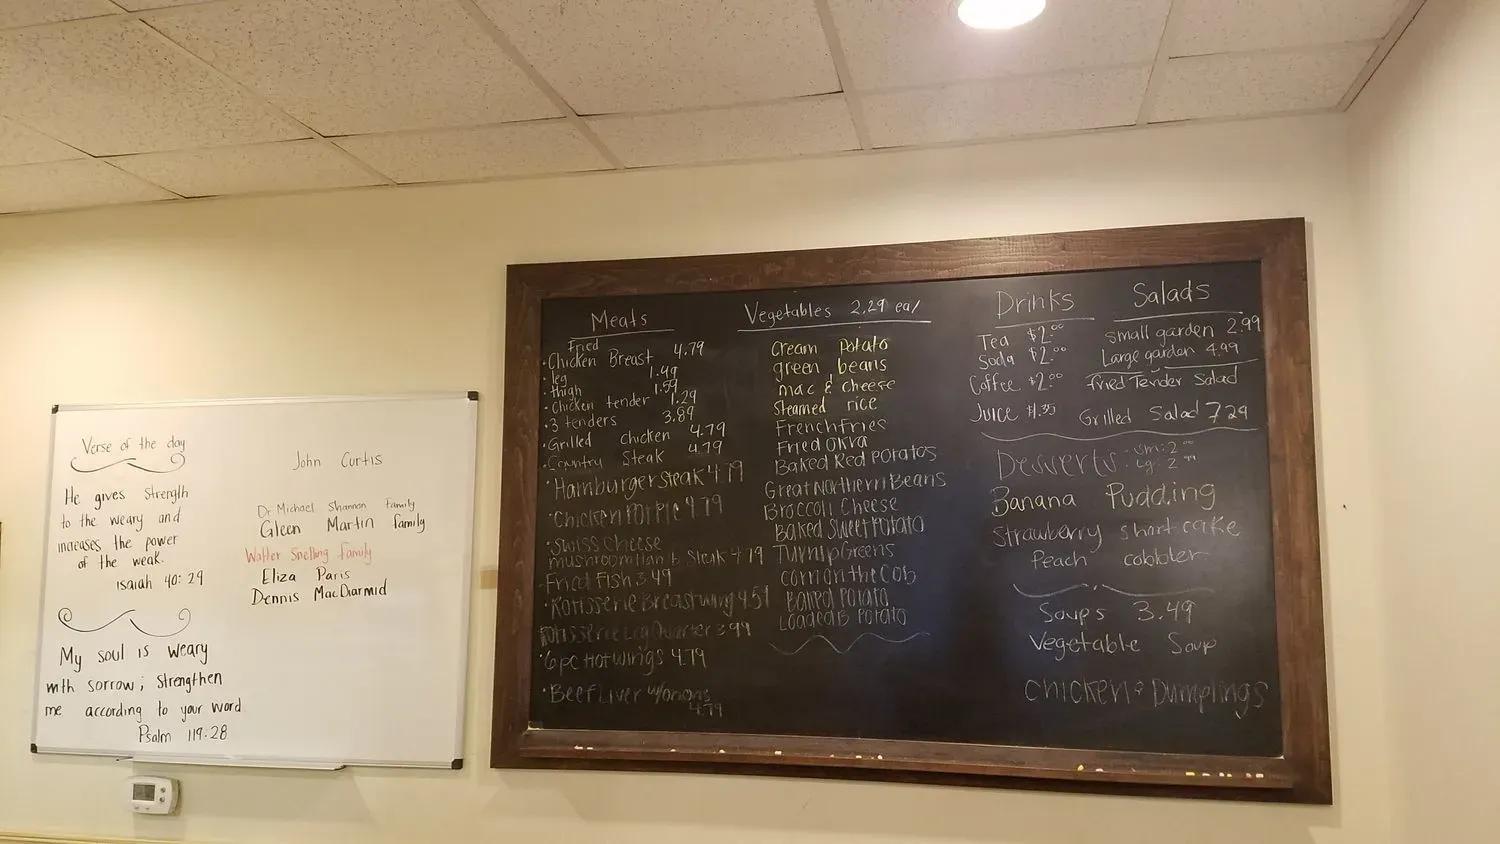 Verse of the day
He gives strength
to the weary and
increases the power
of the weak.
Isaiah 40:29
My soul is weary
with sorrow; strengthen
me according to your word
Psalm 119:28
John Curtis
Dr Michael Shannon Family
Gleen Martin family
Walter Snelling Family
Eliza Paris
Dennis MacDiarmid
Meats
Fried
·Chicken Breast 4.79
·leg 1.49
·thigh 1.59
·Chicken tender 1.29
·3 tenders 3.89
·Grilled Chicken 4.79
·Country Steak 4.79
·Hamburger Steak 4.79
·Chicken Pot Pie 4.79
·Swiss Cheese
mushroom Steak 4.79
Fried Fish 3.49
·Rotisserie Breast wing 4.51
Rotisserie Leg Quarter 3.99
·6pc Hot wings 4.79
·Beef Liver w/onions
4.79
Vegetables 2.29 ea/
Cream Potato
green beans
mac & cheese
Steamed rice
French Fries
Fried Okra
Baked Red Potatos
Great Northern Beans
Broccoli Cheese
Baked Sweet Potato
Turnip Greens
corn on the Cob
Baked Potato
Loaded B Potato
Drinks
Tea $2.00
Soda $2.00
Coffee $2.00
Juice $1.35
Salads
small garden 2.99
Large garden 4.99
fried Tender Salad
Grilled Salad 7.29
Desserts: sm: 2
Lg: 2.99
Banana Pudding
Strawberry short cake
Peach cobbler
Soups 3.49
Vegetable Soup
Chicken & Dumplings